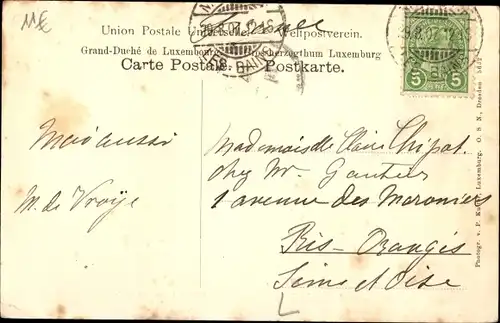 Union Postale Universelle. Weltpostverein.
Grand-Duché de Luxembourg Grossherzogthum Luxemburg
Carte Postale. Postkarte.
29.8.07
5 5
Moi aussi
M. de Vroÿe
Mademoiselle Claire Chipot.
chez Mr Gautier
1 avenue des Maronniers
Ris-Orangis
Seine et Oise
Luxemburg. O. S. N., Dresden